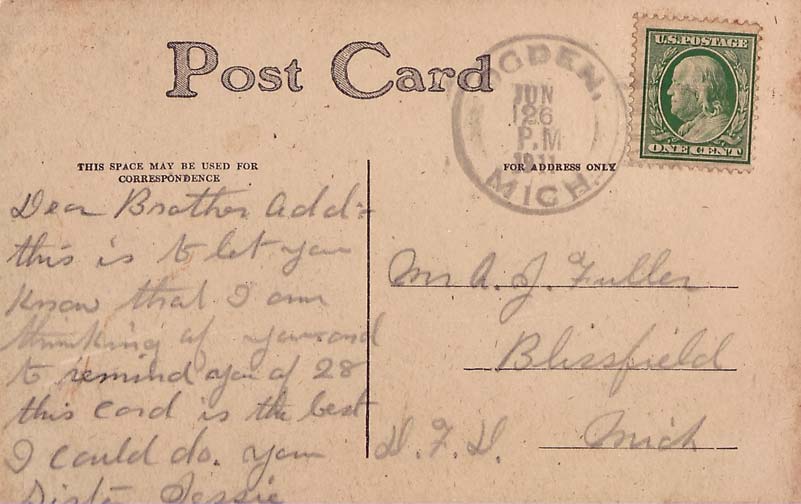 Post Card
OGDEN,
JUN
26
P.M
1911
MICH.
U.S. POSTAGE
ONE CENT
THIS SPACE MAY BE USED FOR
CORRESPONDENCE
FOR ADDRESS ONLY
Dear Brother Add:-
this is to let you
know that I am
thinking of you and
to remind you of 28
this card is the best
I could do. your
Sister Jessie
Mr A. J. Fuller
Blissfield
Mich